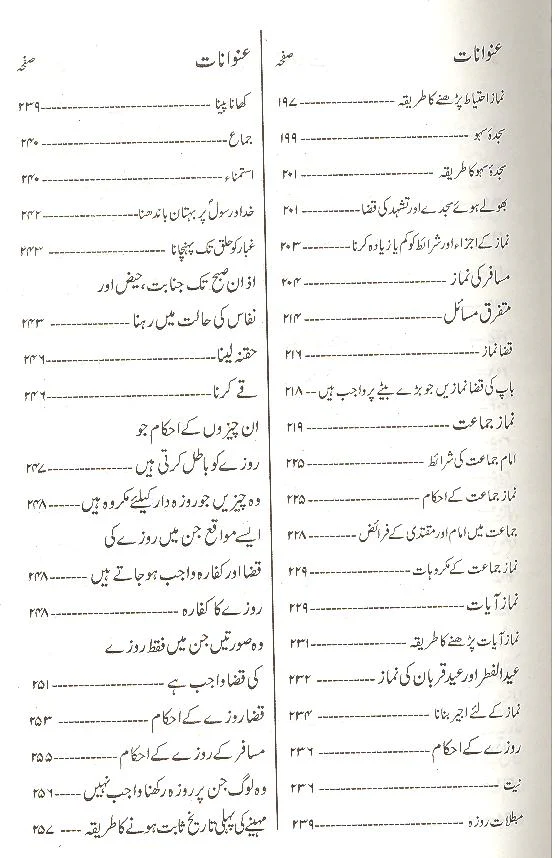 عنوانات صفحہ
نماز احتیاط پڑھنے کا طریقہ ---------- ۱۹۷
سجدۂ سہو ---------- ۱۹۹
سجدۂ سہو کا طریقہ ---------- ۲۰۱
بھولے ہوئے سجدے اور تشہد کی قضا ---------- ۲۰۱
نماز کے اجزاء اور شرائط کو کم یا زیادہ کرنا ---------- ۲۰۳
مسافر کی نماز ---------- ۲۰۴
متفرق مسائل ---------- ۲۱۴
قضا نماز ---------- ۲۱۶
باپ کی قضا نمازیں جو بڑے بیٹے پر واجب ہیں -- ۲۱۸
نماز جماعت ---------- ۲۱۹
امام جماعت کی شرائط ---------- ۲۲۵
نماز جماعت کے احکام ---------- ۲۲۵
جماعت میں امام اور مقتدی کے فرائض ---------- ۲۲۸
نماز جماعت کے مکروہات ---------- ۲۲۹
نماز آیات ---------- ۲۲۹
نماز آیات پڑھنے کا طریقہ ---------- ۲۳۱
عید الفطر اور عید قربان کی نماز ---------- ۲۳۲
نماز کے لئے اجیر بنانا ---------- ۲۳۴
روزے کے احکام ---------- ۲۳۶
نیت ---------- ۲۳۶
مبطلات روزہ ---------- ۲۳۹
عنوانات صفحہ
کھانا پینا ---------- ۲۳۹
جماع ---------- ۲۴۰
استمناء ---------- ۲۴۰
خدا و رسولؐ پر بہتان باندھنا ---------- ۲۴۲
غبار کو حلق تک پہنچانا ---------- ۲۴۳
اذان صبح تک جنابت، حیض اور
نفاس کی حالت میں رہنا ---------- ۲۴۳
حقنہ لینا ---------- ۲۴۶
قے کرنا ---------- ۲۴۶
ان چیزوں کے احکام جو
روزے کو باطل کرتی ہیں ---------- ۲۴۷
وہ چیزیں جو روزہ دار کیلئے مکروہ ہیں ----- ۲۴۸
ایسے مواقع جن میں روزے کی
قضا اور کفارہ واجب ہو جاتے ہیں ------ ۲۴۸
روزے کا کفارہ ---------- ۲۴۸
وہ صورتیں جن میں فقط روزے
کی قضا واجب ہے ---------- ۲۵۱
قضا روزے کے احکام ---------- ۲۵۳
مسافر کے روزے کے احکام ---------- ۲۵۵
وہ لوگ جن پر روزہ رکھنا واجب نہیں ----- ۲۵۶
مہینے کی پہلی تاریخ ثابت ہونے کا طریقہ ---- ۲۵۷